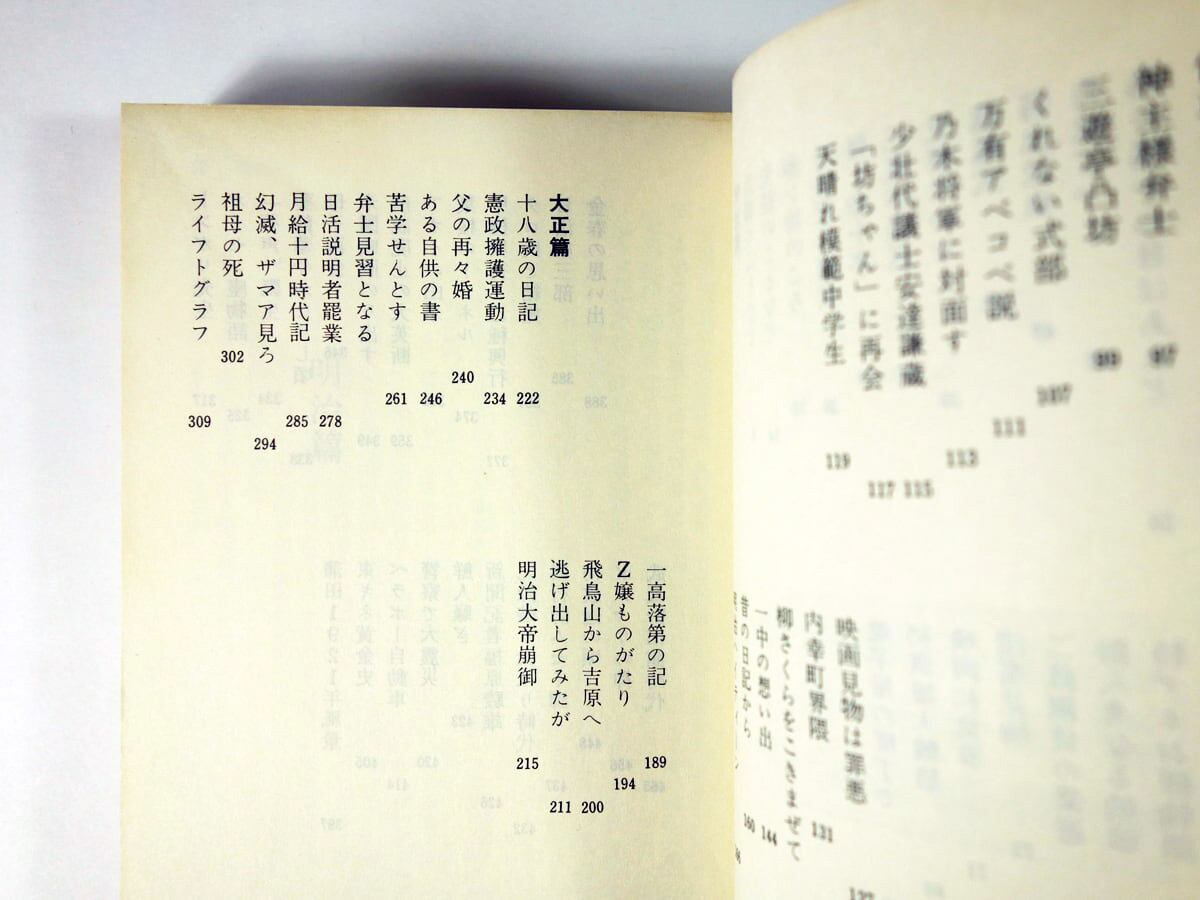 三遊亭凸坊 99
くれない式部 107
万有アベコベ説 111
乃木将軍に対面す 113
少壮代議士安達謙蔵 115
「坊ちゃん」に再会 117
天晴れ模範中学生 119
映画見物は罪悪 131
内幸町界隈
柳さくらをこきまぜて
一中の想い出 144
昔の日記から 160
一高落第の記 189
Z嬢ものがたり 194
飛鳥山から吉原へ 200
逃げ出してみたが 211
明治大帝崩御 215
大正篇
十八歳の日記 222
憲政擁護運動 234
父の再々婚 240
ある自供の書 246
苦学せんとす 261
弁士見習となる
日活説明者罷業 278
月給十円時代記 285
幻滅、ザマア見ろ 294
祖母の死 302
ライフトグラフ 309